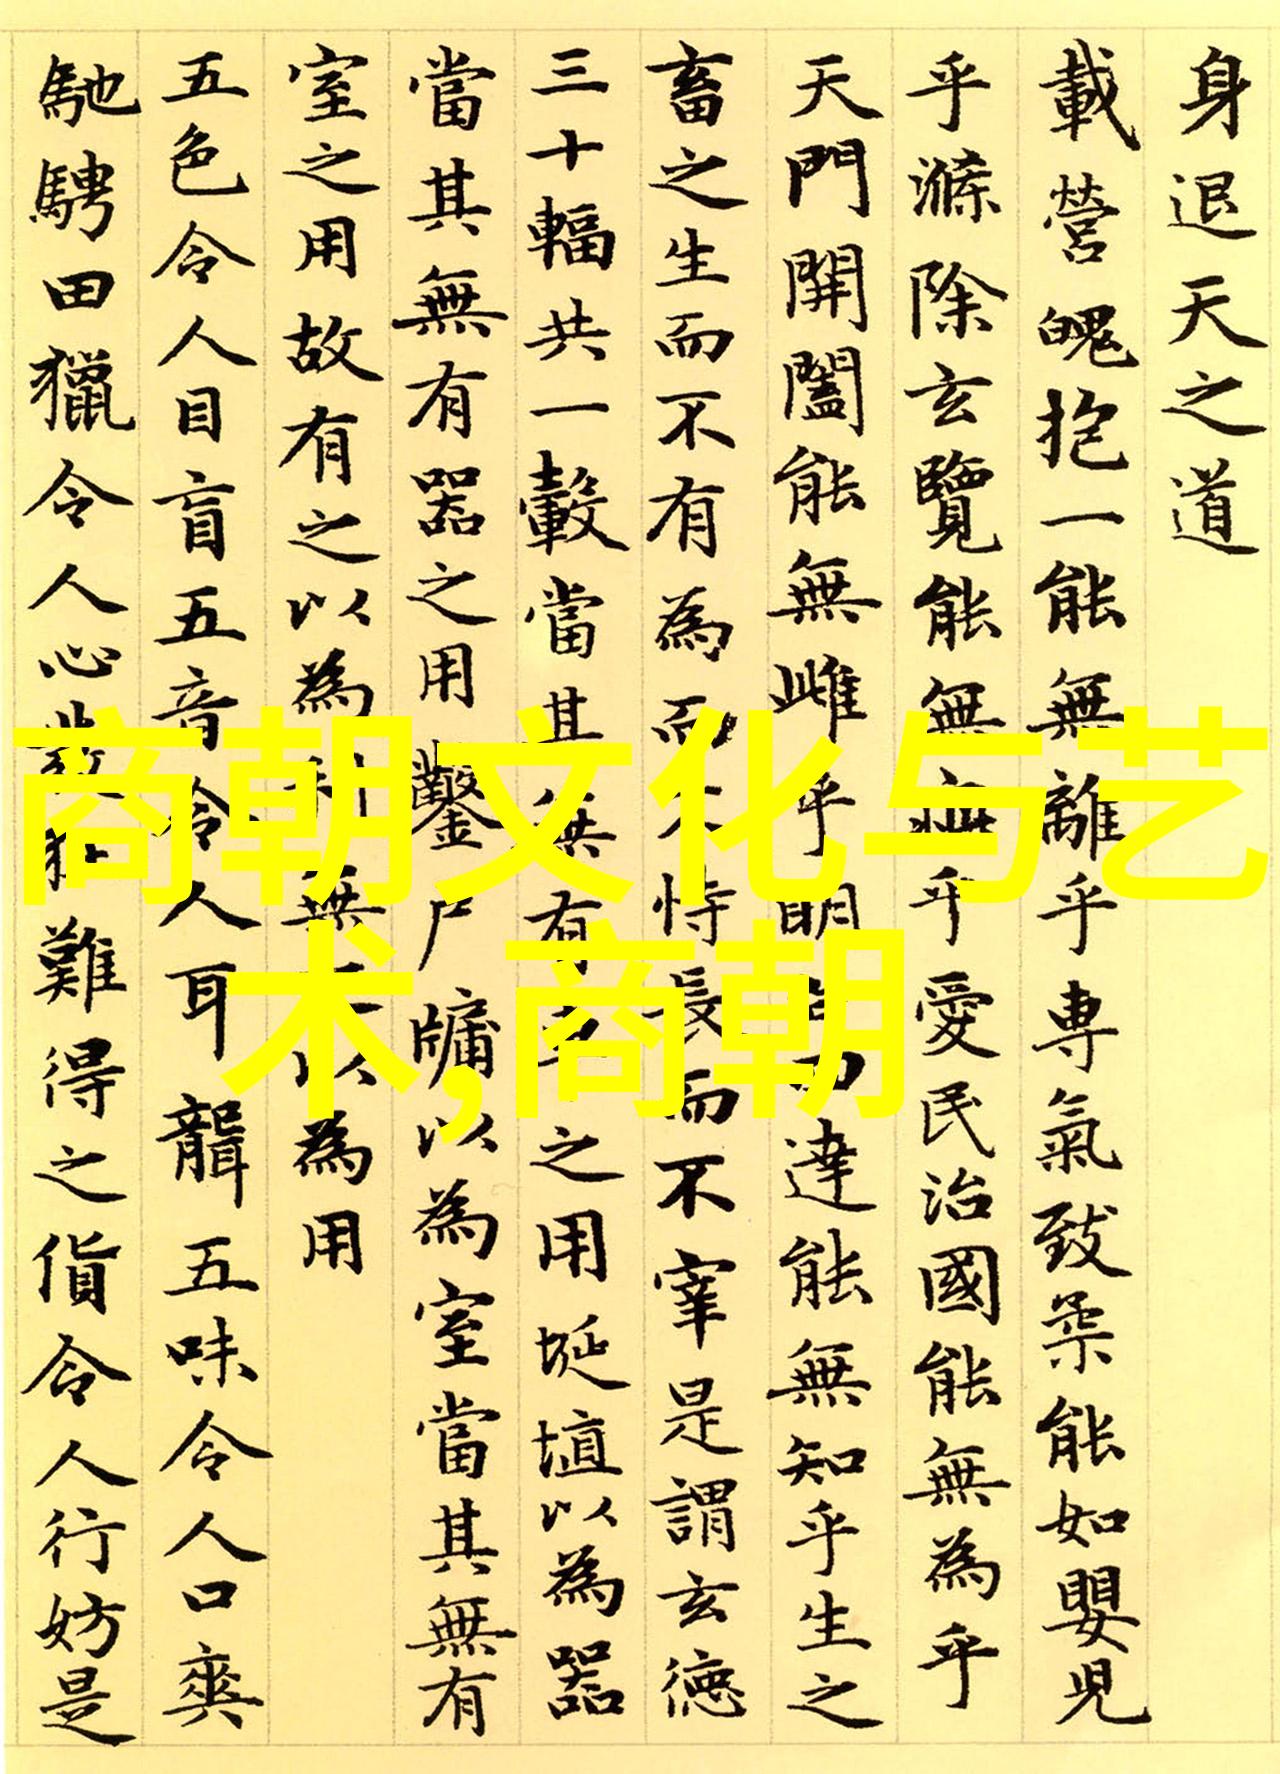 身退天之道
載營魄抱一能無離乎専氣致柔能如嬰児
乎滌除玄覽能無疵乎愛民治國能無為乎
天門開闔能無雌乎明白四達能無知乎生之
畜之生而不有為而不恃長而不宰是謂玄徳
三十輻共一轂當其無有車之用埏埴以為器
當其無有器之用鑿戸牖以為室當其無有
室之用故有之以為利無之以為用
五色令人目盲五音令人耳聾五味令人口爽
馳騁田獵令人心發狂難得之貨令人行妨是
商朝文化与艺
术,商朝